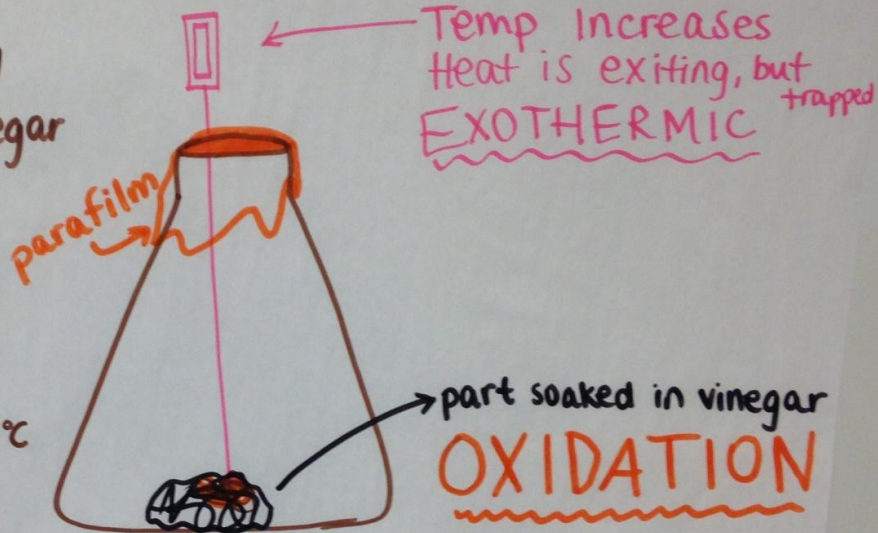 Temp Increases
Heat is exiting, but
trapped
EXOTHERMIC
egar
parafilm
°C
part soaked in vinegar
OXIDATION